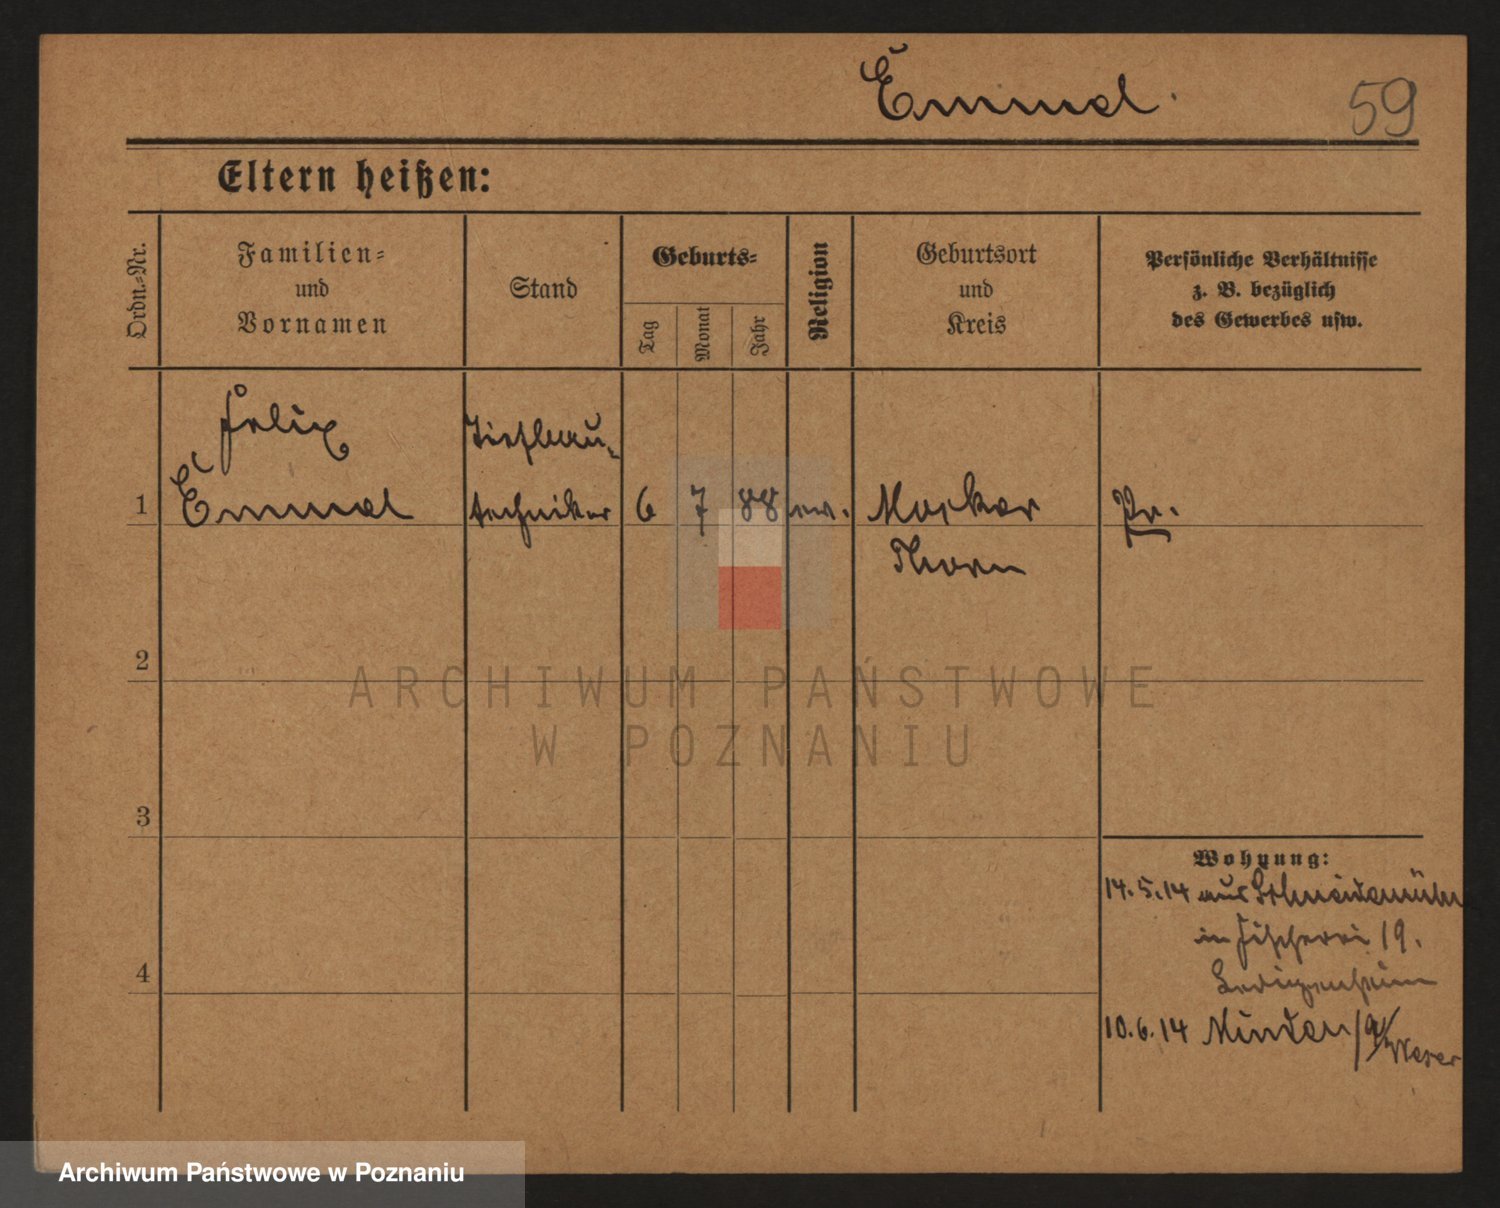 Emmel
59
Eltern heißen:
Ordn.-Nr.
Familien-
und
Vornamen
Stand
Geburts-
Tag
Monat
Jahr
Religion
Geburtsort
und
Kreis
Persönliche Verhältnisse
z. B. bezüglich
des Gewerbes usw.
Felix
Tiefbau-
1 Emmel techniker 6 7 88 ev. Mocker Pr.
Thorn
2
3
4
Wohnung:
14.5.14 aus Schneidemühl
in Fischerei 19.
Ledigenheim
10.6.14 Minden /
Weser
ARCHIWUM PAŃSTWOWE
W POZNANIU
Archiwum Państwowe w Poznaniu